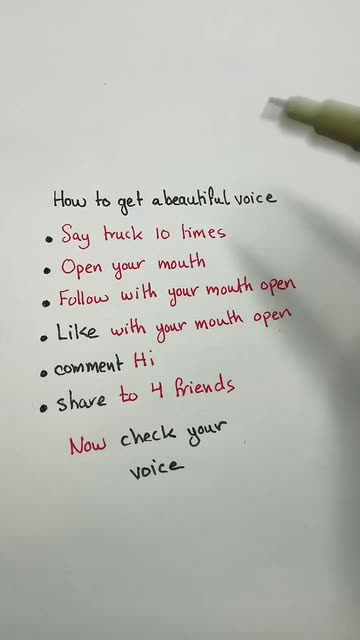 How to get a beautiful voice
• Say truck 10 times
• Open your mouth
• Follow with your mouth open
• Like with your mouth open
• comment Hi
• share to 4 friends
Now check your
voice